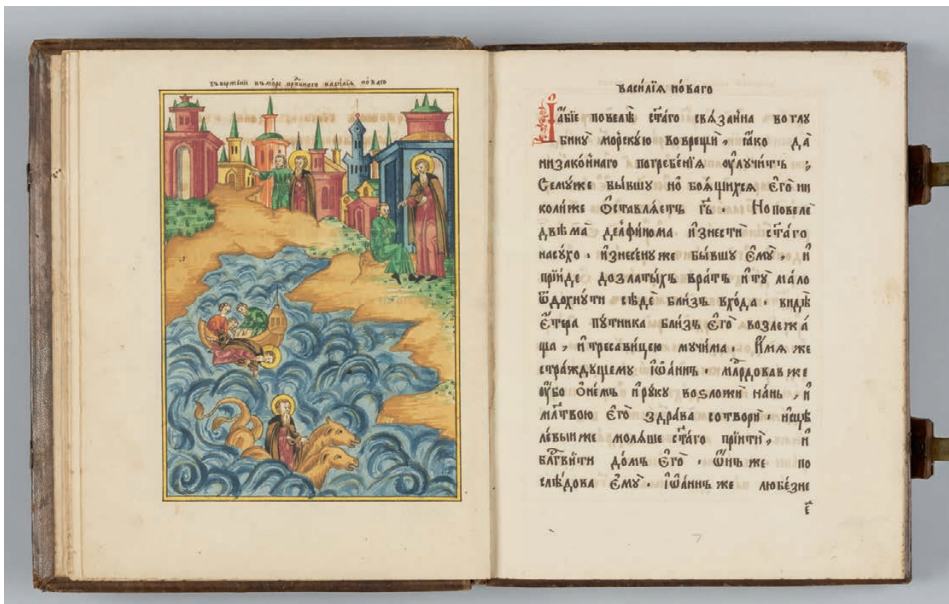 ѡ въверженїи въ море прпⷣбнаго василїѧ новаго
васи́лїѧ но́ваго
І҆а́бїе повелѣ̀ ст҃а́го свѧ́занна во глꙋ
бинꙋ̀ морскꙋ́ю во врещѝ, ꙗ҆́ко да̀
низако́ннаго погребе́нїѧ ᲂу҆лꙋчи́тъ ;
Семꙋ́же бы́вшꙋ но̀ боѧ́щихсѧ є҆гѡ̀ ни
коли́же ѡ҆ставлѧ́етъ гдⷭ҇ь . Но повелѣ̀
двѣ́ма делфи́нома и҆знестѝ ст҃а́го
насꙋ́хо . и҆знесе́нꙋ же бы́вшꙋ є҆мꙋ̀ , и҆
прїи́де до златы́хъ вра́тъ и҆ тꙋ̀ ма́ло
ѿдохнꙋ́ти сѣ́де бли́зъ вхо́да . ви́дѣ
є҆́тера пꙋ́тника бли́зъ є҆гѡ̀ возлежа́
ща , и҆ трѧса́вицею мꙋ́чима . И҆́мѧ же
стра́ждꙋщемꙋ і҆ѡа́ннъ . млⷭ҇рдовав же
ᲂу҆́бо ѡ҆ не́мъ и҆ рꙋ́кꙋ возложѝ на́нь , и҆
мл҃твою є҆гѡ̀ здра́ва сотворѝ . и҆сцѣ
лѣ́выи же молѧ́ше ст҃а́го прїитѝ , и҆
блгⷭ҇ви́ти до́мъ є҆гѡ̀ . Ѻ҆́нъ же по
слѣ́дова є҆мꙋ̀ . і҆ѡа́ннъ же любе́зне
є҆